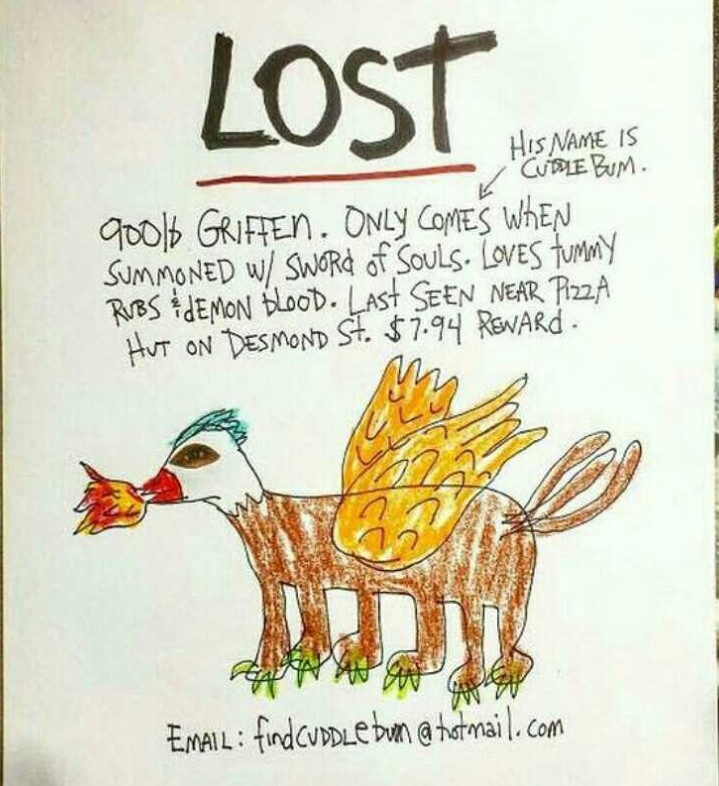 LOST
HIS NAME IS
CUDDLE BUM.
900lb GRIFFEN. ONLY COMES WHEN
SUMMONED W/ SWORD of SOULS. LOVES tUMMY
RUBS & dEMON bLOOD. LASt SEEN NEAR PIZZA
HUT ON DESMOND St. $7.94 REWARd.
EMAIL: findCUDDLEbum@hotmail.com